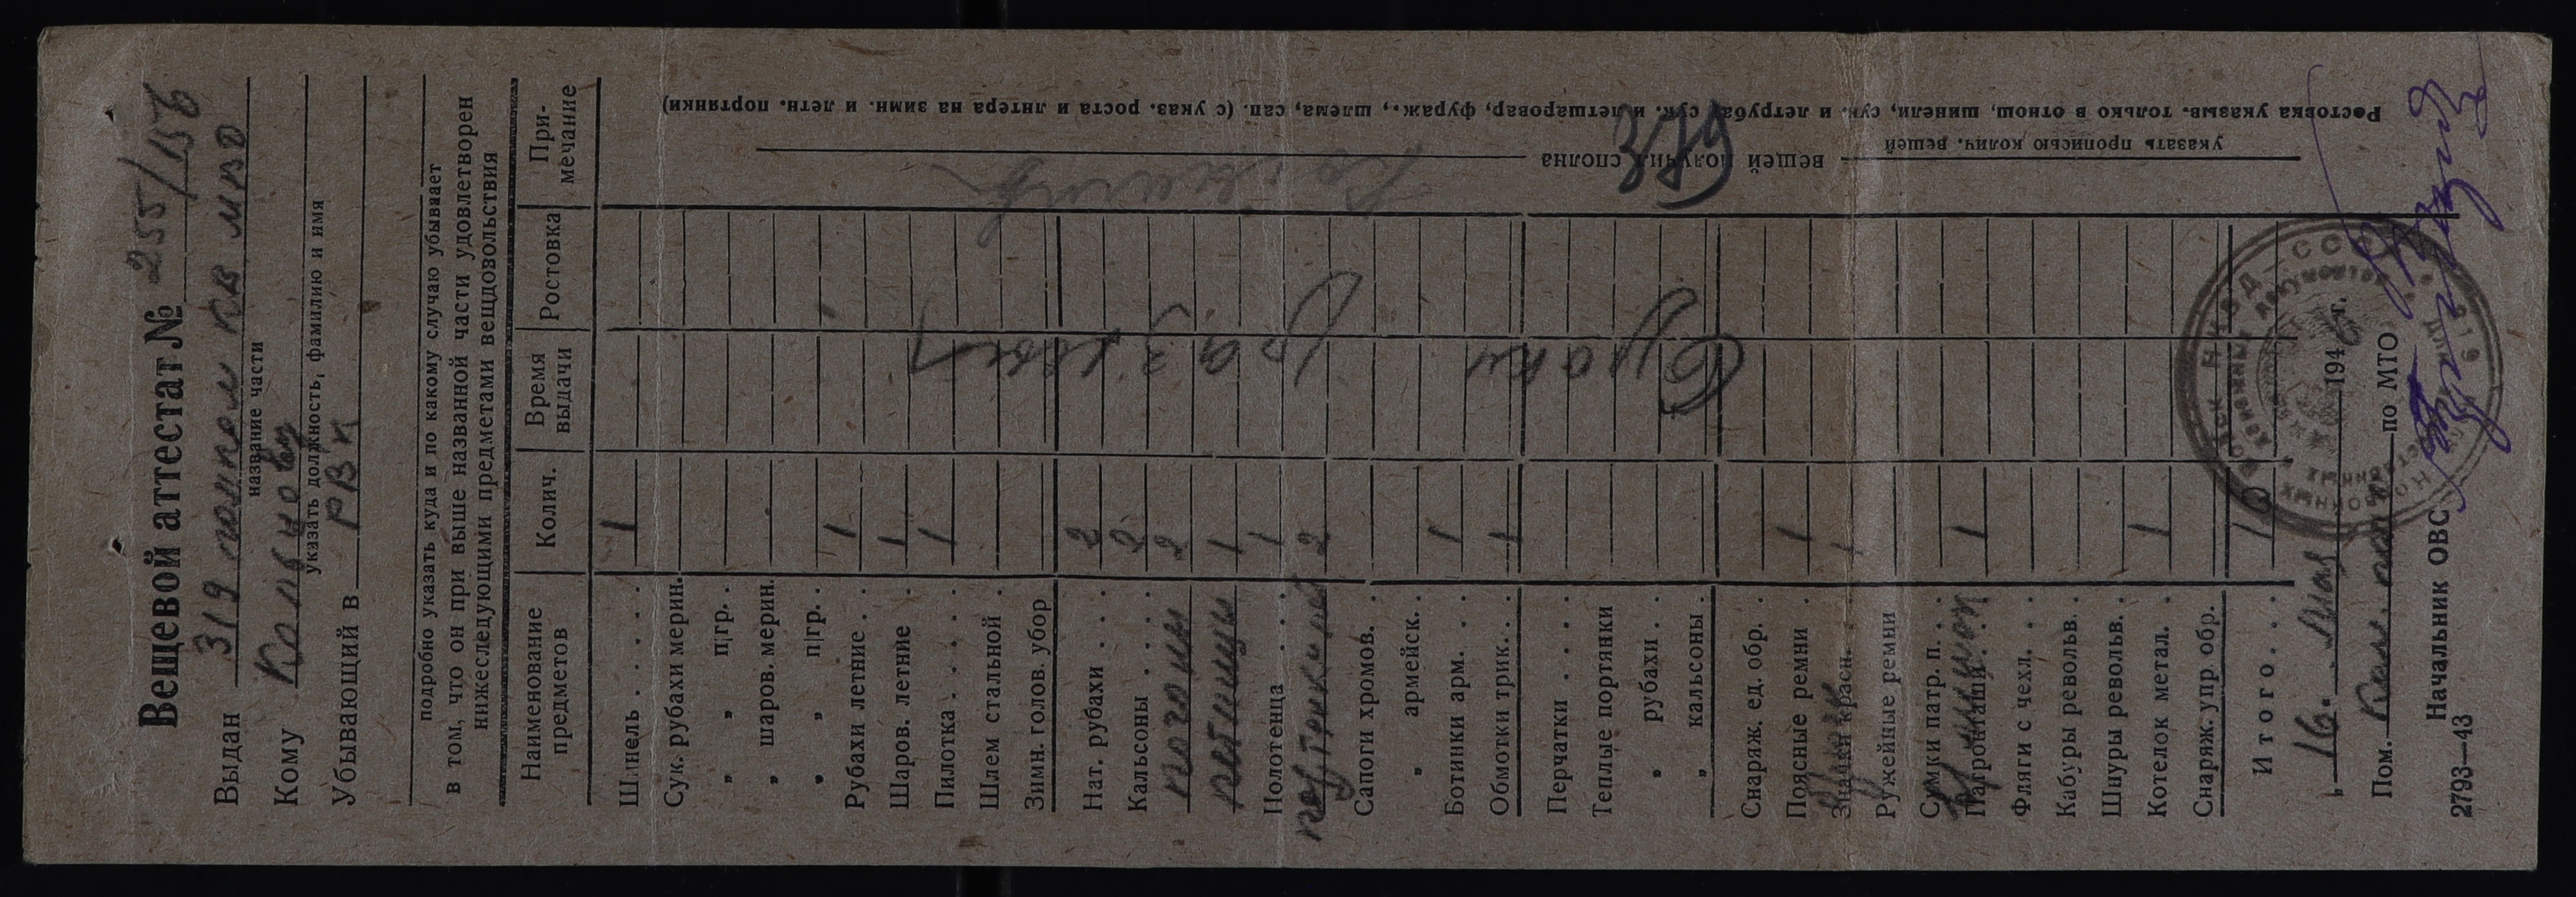 Вещевой аттестат № 255/156
Выдан 319 конвои кв мвд
название части
Кому
указать должность, фамилию и имя
Убывающий в РВК
подробно указать куда и по какому случаю убывает
в том, что он при выше названной части удовлетворен
нижеследующими предметами вещдовольствия
Наименование предметов Колич. Время выдачи Ростовка При-мечание
Шинель . . . . . 1
Сук. рубахи мерин.
„ „ п|гр. .
„ шаров. мерин.
„ „ п|гр. .
Рубахи летние . 1
Шаров. летние . 1
Пилотка . . . . 1
Шлем стальной .
Зимн. голов. убор
Нат. рубахи . . . 2
Кальсоны . . . . 2
погоны 2
петлицы 1
Полотенца . . . 1
портянки лет 2
Сапоги хромов.
„ армейск. .
Ботинки арм. . . 1
Обмотки трик. . . 1
Перчатки . . . .
Теплые портянки
„ рубахи . .
„ кальсоны .
Снаряж. ед. обр. .
Поясные ремни . 1
Знаки красн. . . 1
Ружейные ремни
Сумки патр. п. . .
Патронташи . . 1
Фляги с чехл. . .
Кабуры револьв. .
Шнуры револьв. .
Котелок метал. . 1
Снаряж. упр обр. .
Итого . . .
„16. мая 1946 г.
Пом. по МТО
Начальник ОВС
2793—43
указать прописью колич. вещей
вещей получил сполна
Ростовка указыв. только в отнош, шинели, сук. и летруба, сук. и летшаровар, фураж., шлема, сап. (с указ. роста и литера на зимн. и летн. портянки)